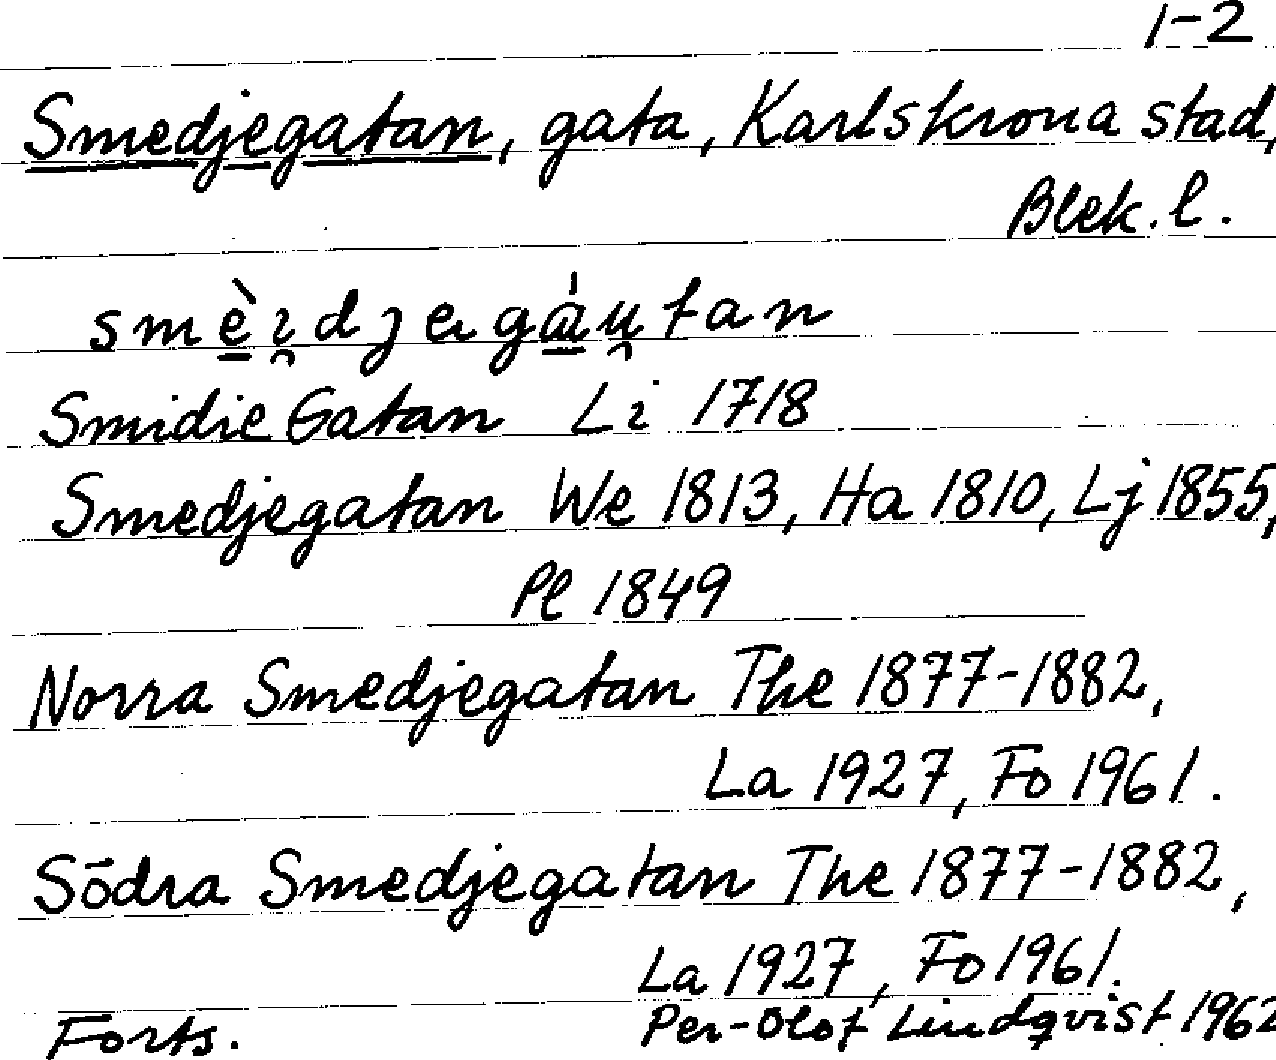 1-2
Smedjegatan, gata, Karlskrona stad,
Blek. l.
Smidie Gatan Li 1718
Smedjegatan We 1813, Ha 1810, Lj 1855,
Pl 1849
Norra Smedjegatan The 1877-1882,
La 1927, Fo 1961.
Södra Smedjegatan The 1877-1882,
La 1927, Fo 1961.
Forts. Per-Olof Lindqvist 1962